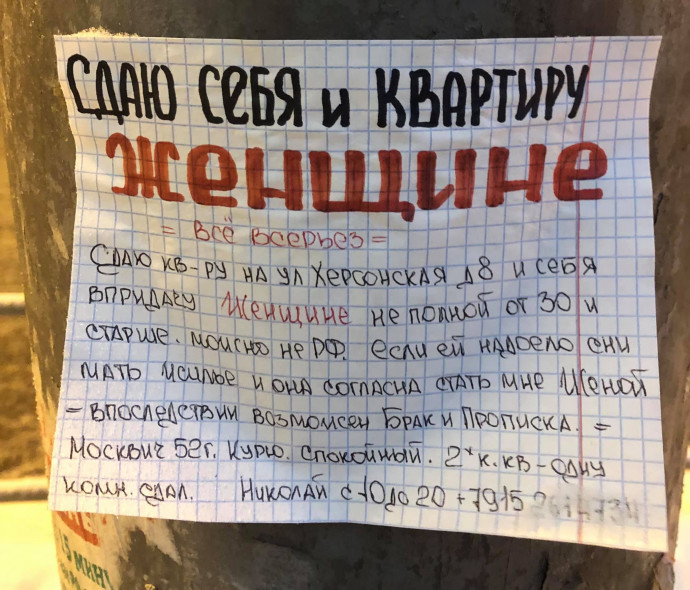 СДАЮ СЕБЯ и КВАРТИРУ
ЖЕНЩИНЕ
= ВСЁ ВСЕРЬЕЗ =
СДАЮ КВ-РУ НА УЛ ХЕРСОНСКАЯ Д8 И СЕБЯ
ВПРИДАЧУ ЖЕНЩИНЕ НЕ ПОЛНОЙ ОТ 30 И
СТАРШЕ. МОЖНО НЕ РФ. ЕСЛИ ЕЙ НАДОЕЛО СНИ
МАТЬ ЖИЛЬЕ И ОНА СОГЛАСНА СТАТЬ МНЕ ЖЕНОЙ
- ВПОСЛЕДСТВИИ ВОЗМОЖЕН БРАК И ПРОПИСКА. =
МОСКВИЧ 52г. КУРЮ. СПОКОЙНЫЙ. 2*К.КВ-ОДНУ
КОМН. СДАЛ. НИКОЛАЙ С 10 ДО 20 +7915
15 МИН